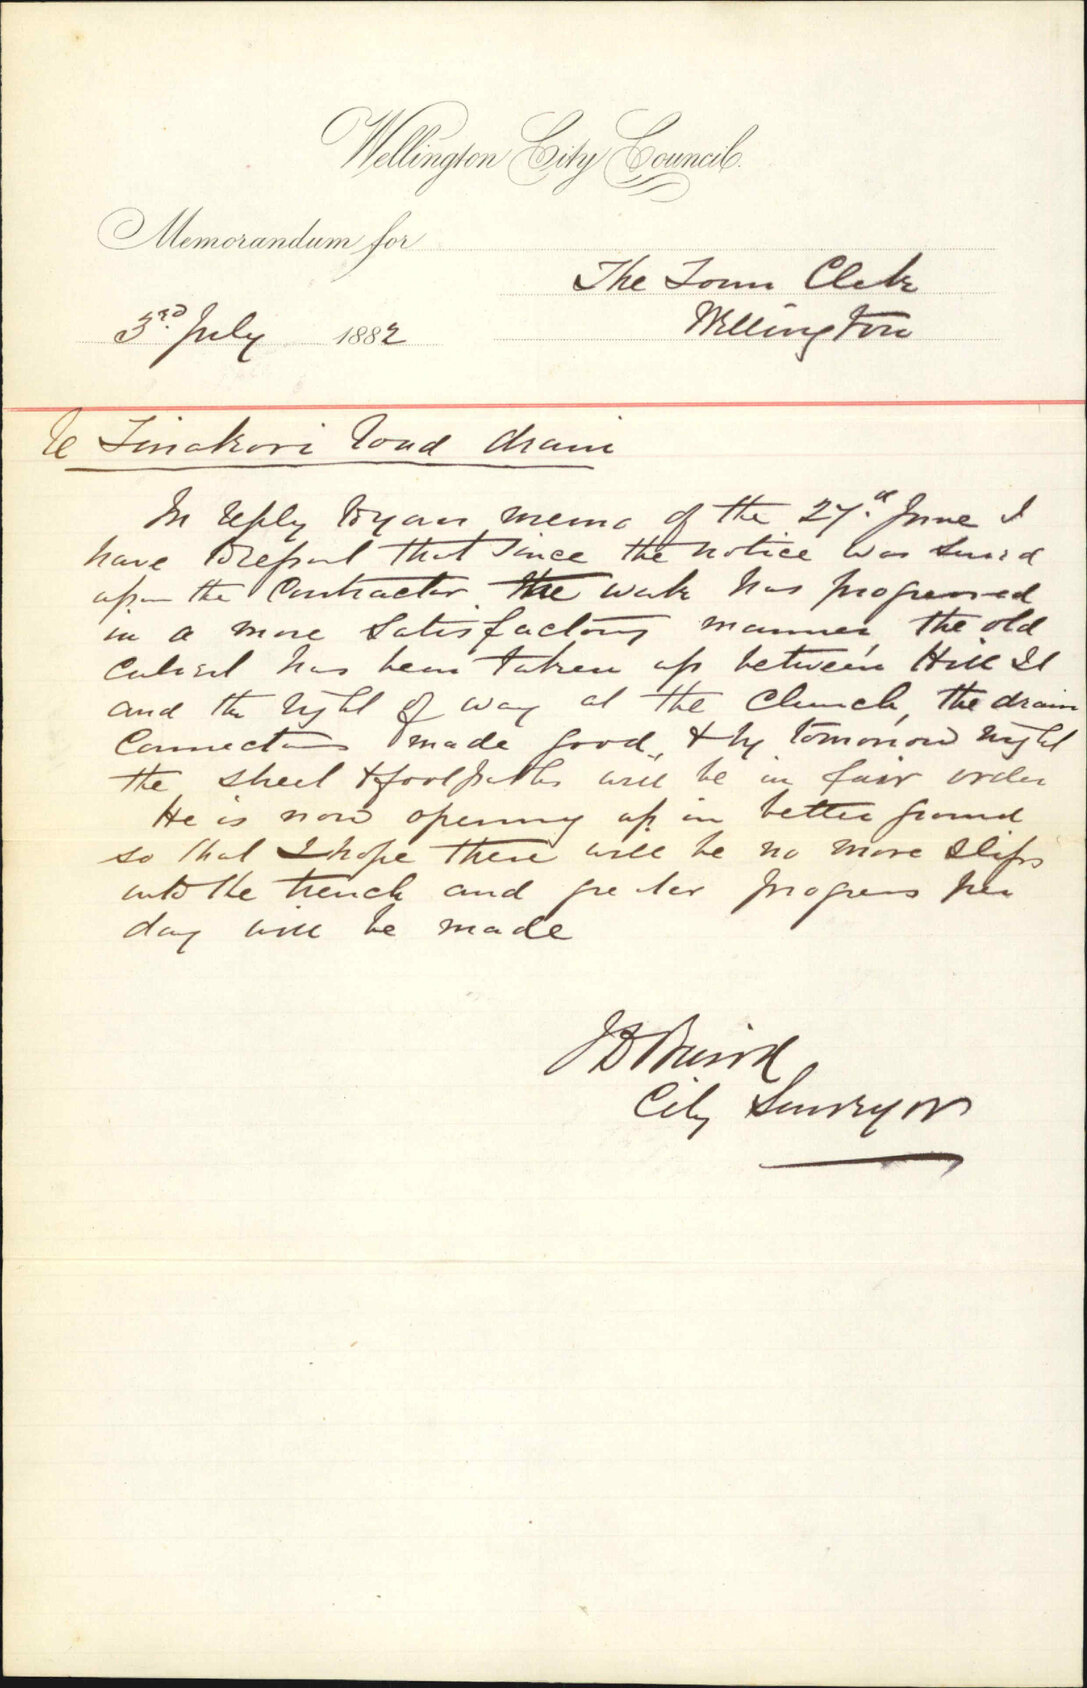 Wellington City Council.
Memorandum for
The Town Clerk
3rd. July 1882 Wellington
Re Tinakori Road drain
In reply to your memo of the 27th. June I
have to report that since the notice was served
upon the Contractor the work has progressed
in a more satisfactory manner, the old
culvert has been taken up between Hill St
and the right of way at the Church, the drain
connections made good, & by tomorrow night
the street & footpaths will be in fair order
He is now opening up in better ground
so that I hope there will be no more slips
into the trench and greater progress per
day will be made
J D Baird
City Surveyor